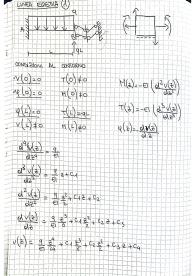 LINEA ELASTICA (1)
q
L
qL
CONDIZIONI AL CONTORNO
v(0)=0 T(0)≠0
φ(0)=0 M(0)≠0
φ(L)=0 T(L)=qL
v(L)≠0 M(L)≠0
M(z)=-EI(d²v(z)/dz²)
T(z)=-EI(d³v(z)/dz³)
φ(z)=dv(z)/dz
d⁴v(z)/dz⁴ = q/EI
d³v(z)/dz³ = q/EI z+C1
d²v(z)/dz² = q/EI z²/2 + C1 z + C2
dv(z)/dz = q/EI z³/6 + C1 z²/2 + C2 z + C3
v(z) = q/EI z⁴/24 + C1 z³/6 + C2 z²/2 + C3 z + C4